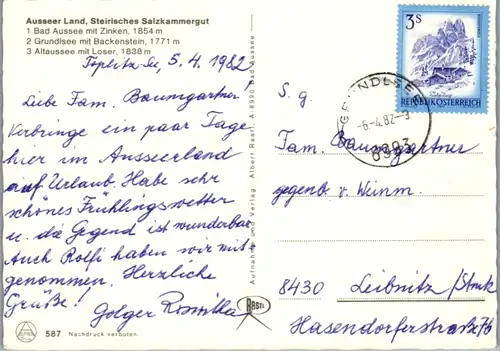 Ausseer Land, Steirisches Salzkammergut
1 Bad Aussee mit Zinken, 1854 m
2 Grundlsee mit Backenstein, 1771 m
3 Altaussee mit Loser, 1838 m
Toplitz-See, 5.4.1982
Liebe Fam. Baumgartner,
Verbringe ein paar Tage
hier im Ausseerland
auf Urlaub. Habe sehr
schönes Frühlingswetter
u. die Gegend ist wunderbar.
Auch Rolfi haben wir mit-
genommen. Herzliche
Grüße!
Golger Rosmitha
587 Nachdruck verboten.
Aufnahme und Verlag Albert Rastl, A-8990 Bad Aussee
RASTL
3S
REPUBLIK ÖSTERREICH
GRUNDLSEE
-6.-4.82-3
8993
S. g.
Fam. Baumgartner
gegenb. v. Weinm.
8430 Leibnitz/Stmk
Hasendorferstraße 76